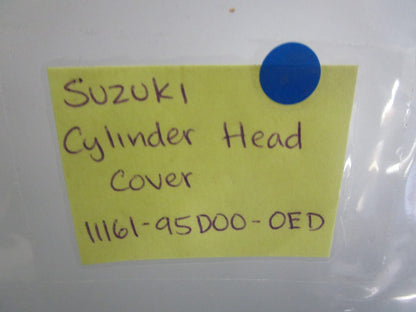 SUZUKI
Cylinder Head
Cover
11161-95D00-0ED